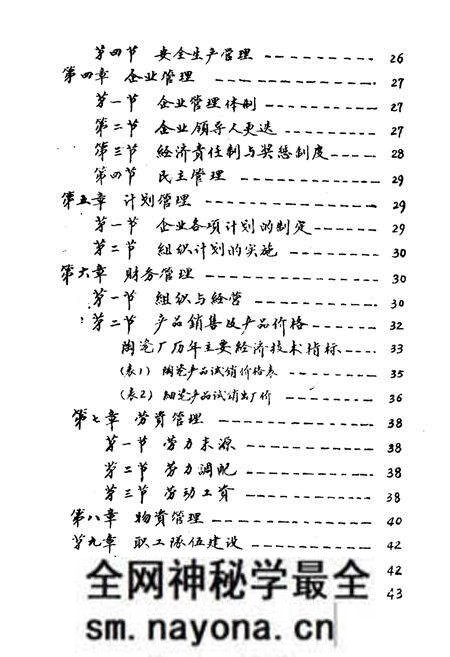 第四节 安全生产管理 ------------ 26
第四章 企业管理 ------------ 27
第一节 企业管理体制 ------------ 27
第二节 企业领导人更迭 ------------ 27
第三节 经济责任制与奖惩制度 ------ 28
第四节 民主管理 ------------ 29
第五章 计划管理 ------------ 29
第一节 企业各项计划的制定 ------ 29
第二节 组织计划的实施 ------------ 30
第六章 财务管理 ------------ 30
第一节 组织与经营 ------------ 30
第二节 产品销售及产品价格 ------ 32
陶瓷厂历年主要经济技术指标 ---- 33
(表1) 陶瓷产品试销价格表 ------ 35
(表2) 细瓷产品试销出厂价 ------ 36
第七章 劳资管理 ------------ 38
第一节 劳力来源 ------------ 38
第二节 劳力调配 ------------ 38
第三节 劳动工资 ------------ 38
第八章 物资管理 ------------ 40
第九章 职工队伍建设 ------------ 42
42
43
全网神秘学最全
sm.nayona.cn